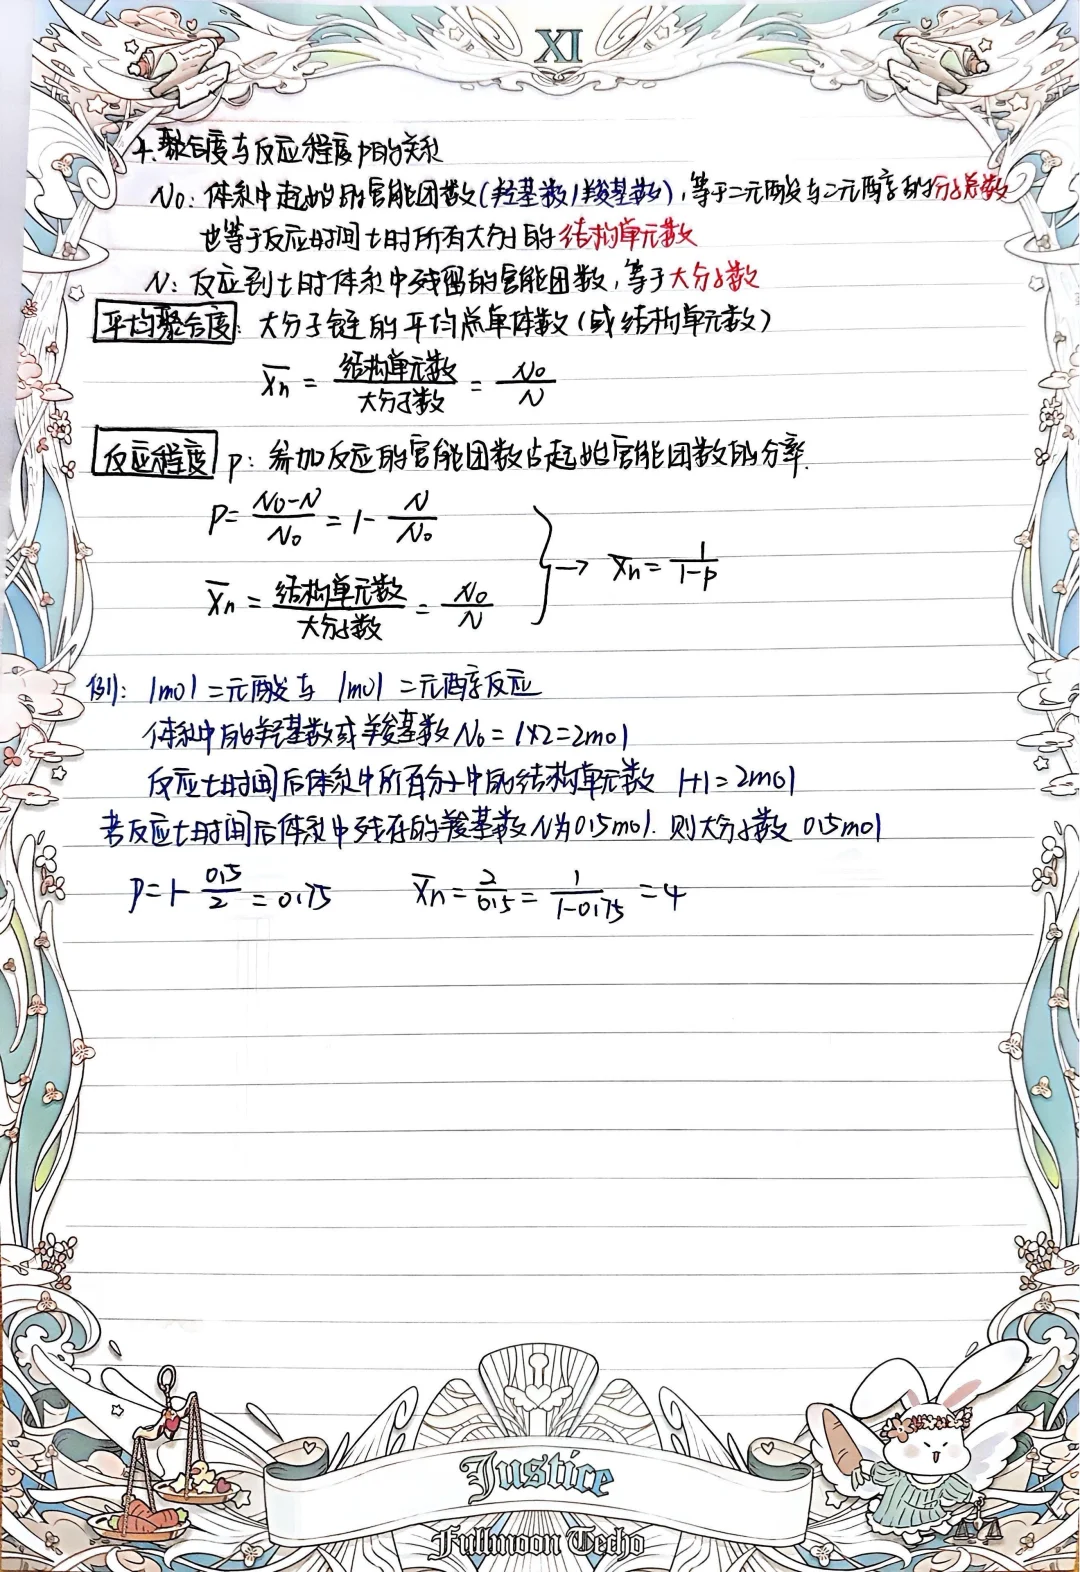 XI
4.聚合度与反应程度p的关系
N₀：体系中起始的官能团数(羟基数/羧基数)，等于二元酸与二元醇的分子总数
也等于反应时间t时所有大分子的结构单元数
N：反应到t时体系中残留的官能团数，等于大分子数
平均聚合度：大分子链的平均总单体数(或结构单元数)
X̄n = 结构单元数/大分子数 = N₀/N
反应程度 p：参加反应的官能团数占起始官能团数的分率.
P = (N₀-N)/N₀ = 1 - N/N₀
X̄n = 结构单元数/大分子数 = N₀/N } → X̄n = 1/(1-p)
例：1mol二元酸与1mol二元醇反应
体系中的羟基数或羧基数N₀=1×2=2mol
反应t时间后体系中所有分子中的结构单元数 1+1=2mol
若反应t时间后体系中残存的羧基数N为0.5mol. 则大分子数 0.5mol
P=1-0.5/2=0.75 X̄n=2/0.5=1/(1-0.75)=4
Justice
Fullmoon Techo